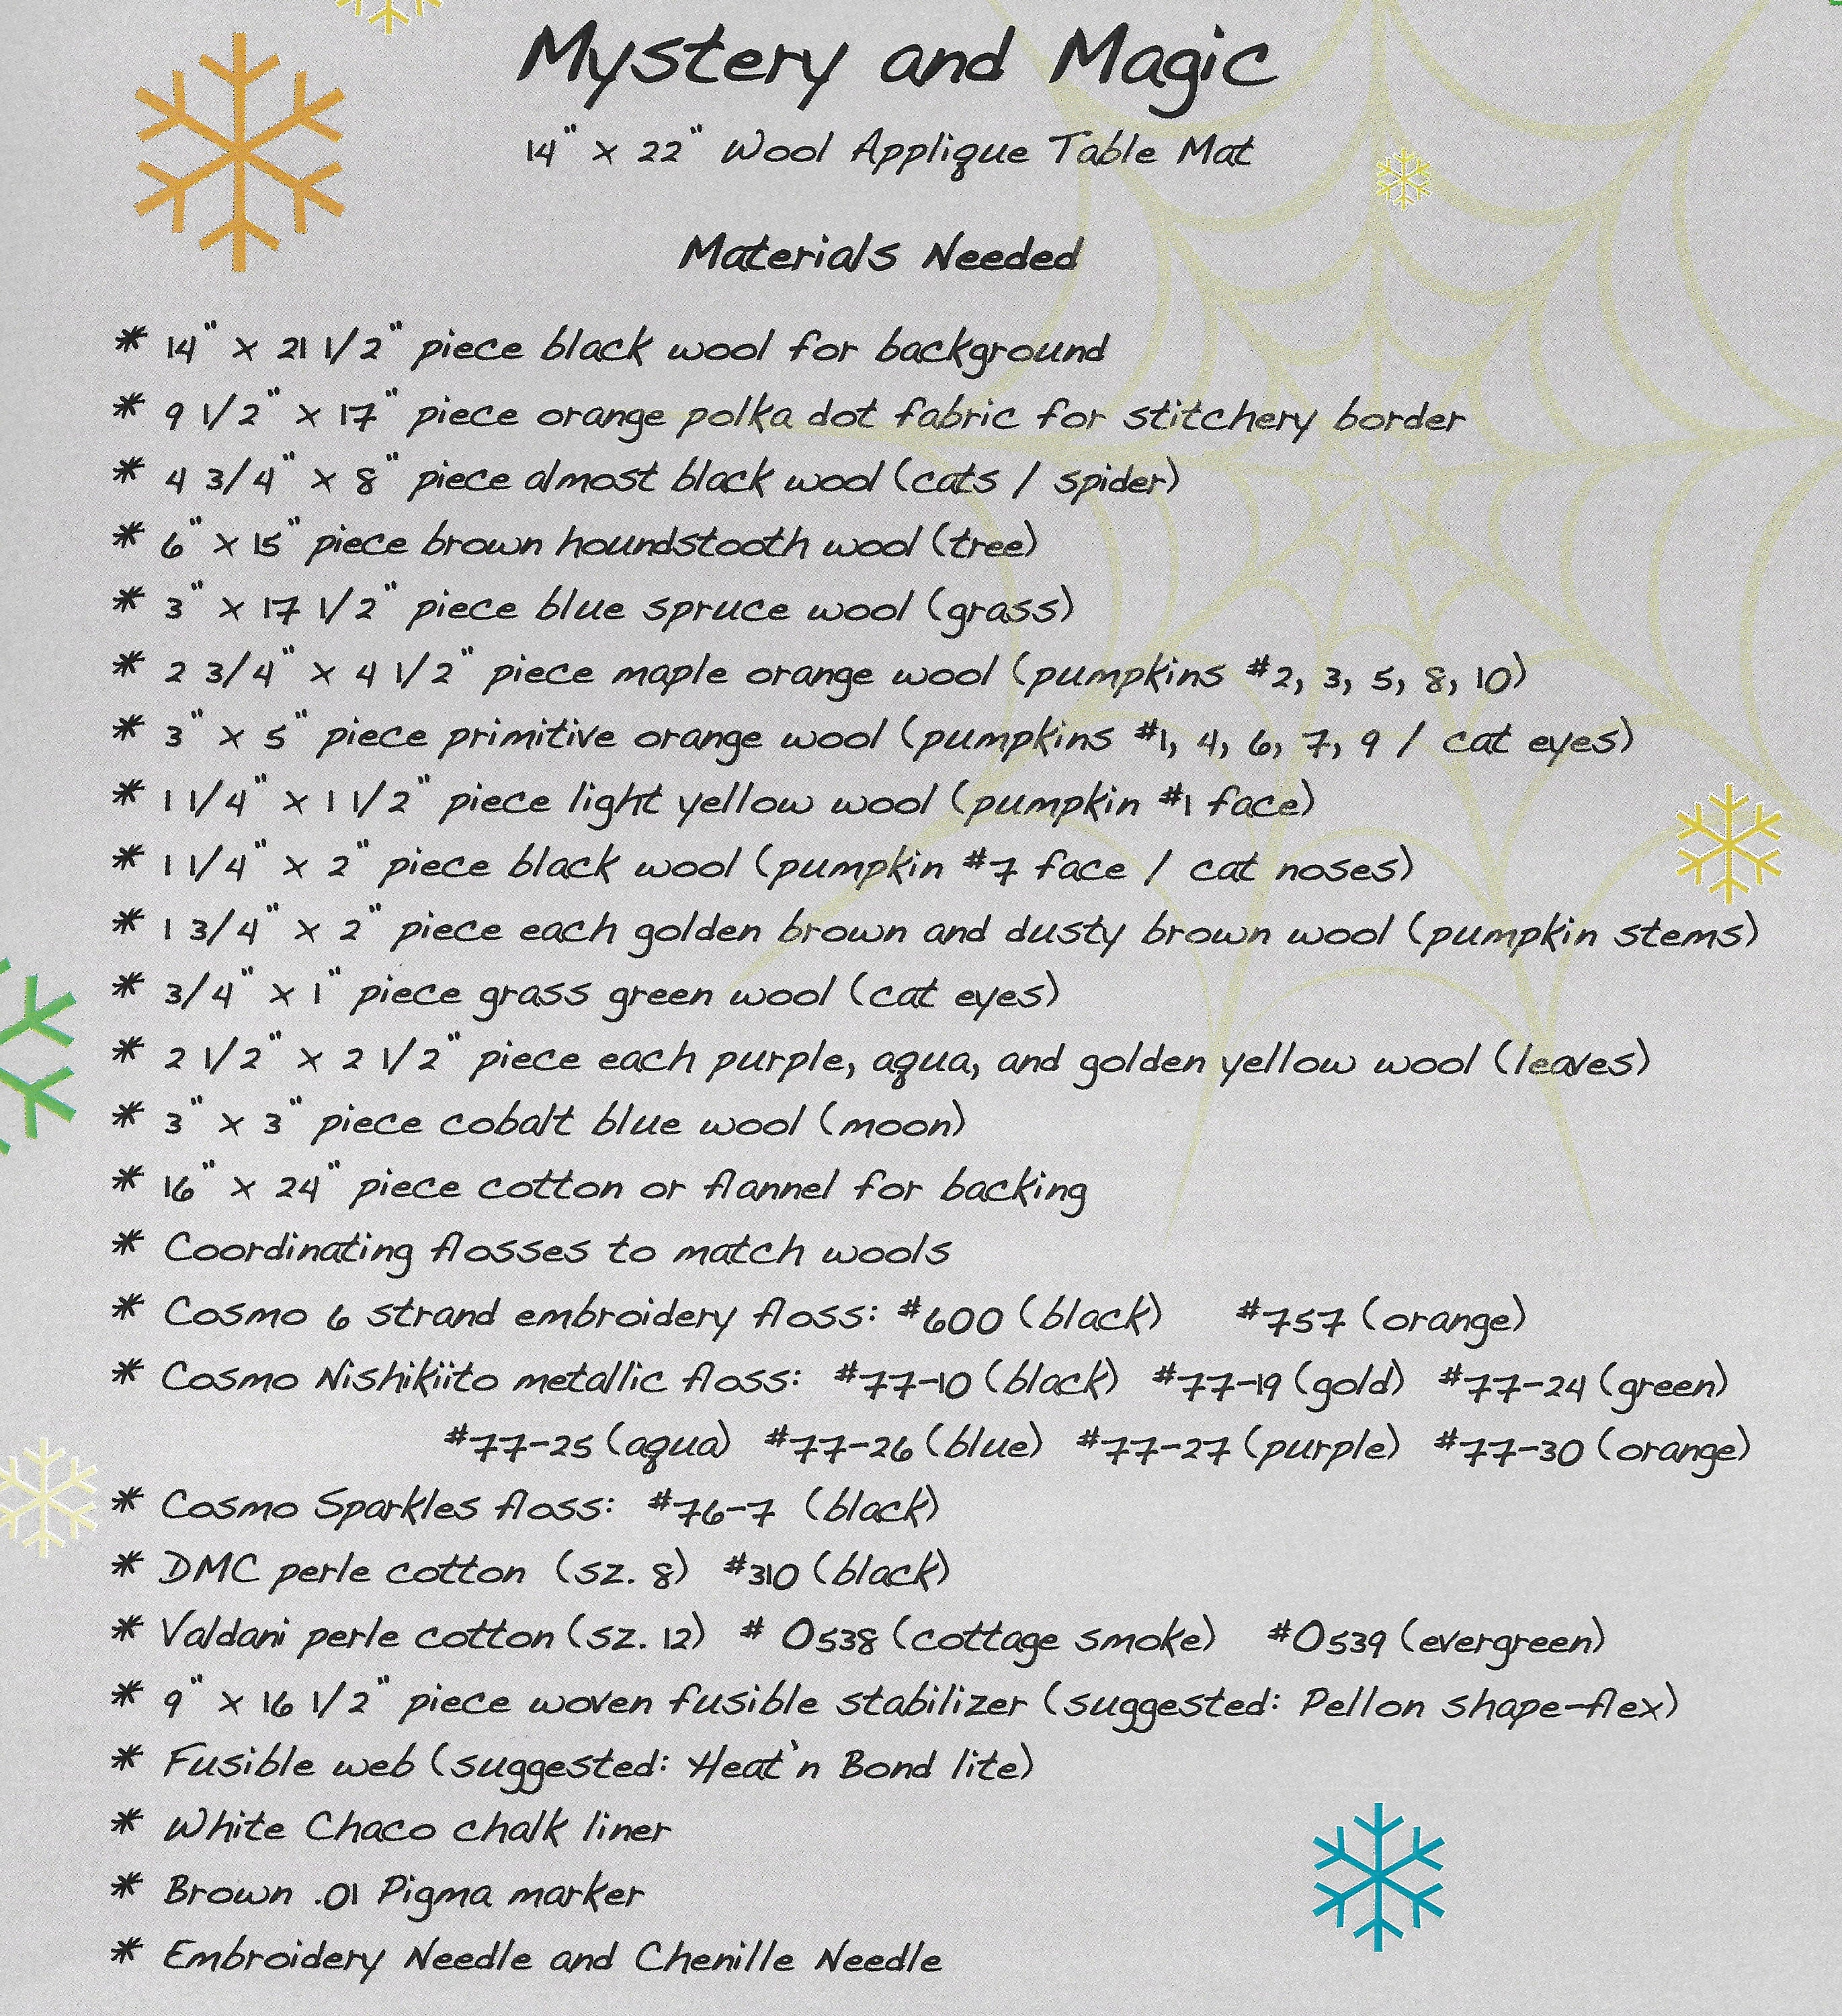 Mystery and Magic
14" x 22" Wool Applique Table Mat
Materials Needed
* 14" x 21 1/2" piece black wool for background
* 9 1/2" x 17" piece orange polka dot fabric for stitchery border
* 4 3/4" x 8" piece almost black wool (cats / spider)
* 6" x 15" piece brown houndstooth wool (tree)
* 3" x 17 1/2" piece blue spruce wool (grass)
* 2 3/4" x 4 1/2" piece maple orange wool (pumpkins #2, 3, 5, 8, 10)
* 3" x 5" piece primitive orange wool (pumpkins #1, 4, 6, 7, 9 / cat eyes)
* 1 1/4" x 1 1/2" piece light yellow wool (pumpkin #1 face)
* 1 1/4" x 2" piece black wool (pumpkin #7 face / cat noses)
* 1 3/4" x 2" piece each golden brown and dusty brown wool (pumpkin stems)
* 3/4" x 1" piece grass green wool (cat eyes)
* 2 1/2" x 2 1/2" piece each purple, aqua, and golden yellow wool (leaves)
* 3" x 3" piece cobalt blue wool (moon)
* 16" x 24" piece cotton or flannel for backing
* Coordinating flosses to match wools
* Cosmo 6 strand embroidery floss: #600 (black) #757 (orange)
* Cosmo Nishikiito metallic floss: #77-10 (black) #77-19 (gold) #77-24 (green)
#77-25 (aqua) #77-26 (blue) #77-27 (purple) #77-30 (orange)
* Cosmo Sparkles floss: #76-7 (black)
* DMC perle cotton (sz. 8) #310 (black)
* Valdani perle cotton (sz. 12) # O538 (cottage smoke) #O539 (evergreen)
* 9" x 16 1/2" piece woven fusible stabilizer (suggested: Pellon shape-flex)
* Fusible web (suggested: Heat'n Bond lite)
* White Chaco chalk liner
* Brown .01 Pigma marker
* Embroidery Needle and Chenille Needle